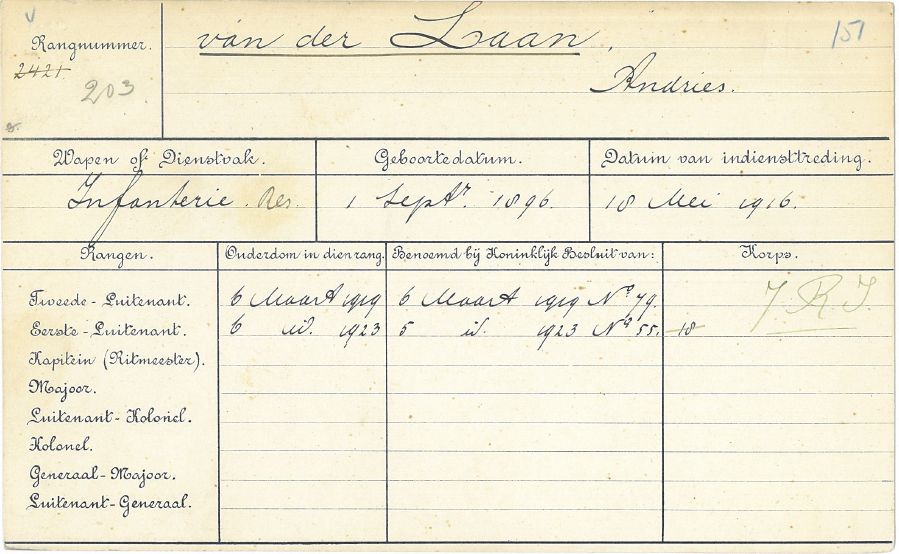 van der Laan,
151
Rangnummer.
2421
203
Andries.
Wapen of Dienstvak.
Geboortedatum.
Datum van indiensttreding.
Infanterie. Res.
1 Septr. 1896.
18 Mei 1916.
Rangen.
Ouderdom in dien rang.
Benoemd bij Koninklijk Besluit van:
Korps.
Tweede-Luitenant. 6 Maart 1919 6 Maart 1919 No 79. 7 R.I.
Eerste-Luitenant. 6 id. 1923 5 id. 1923 No 55. 18
Kapitein (Ritmeester).
Majoor.
Luitenant-Kolonel.
Kolonel.
Generaal-Majoor.
Luitenant-Generaal.